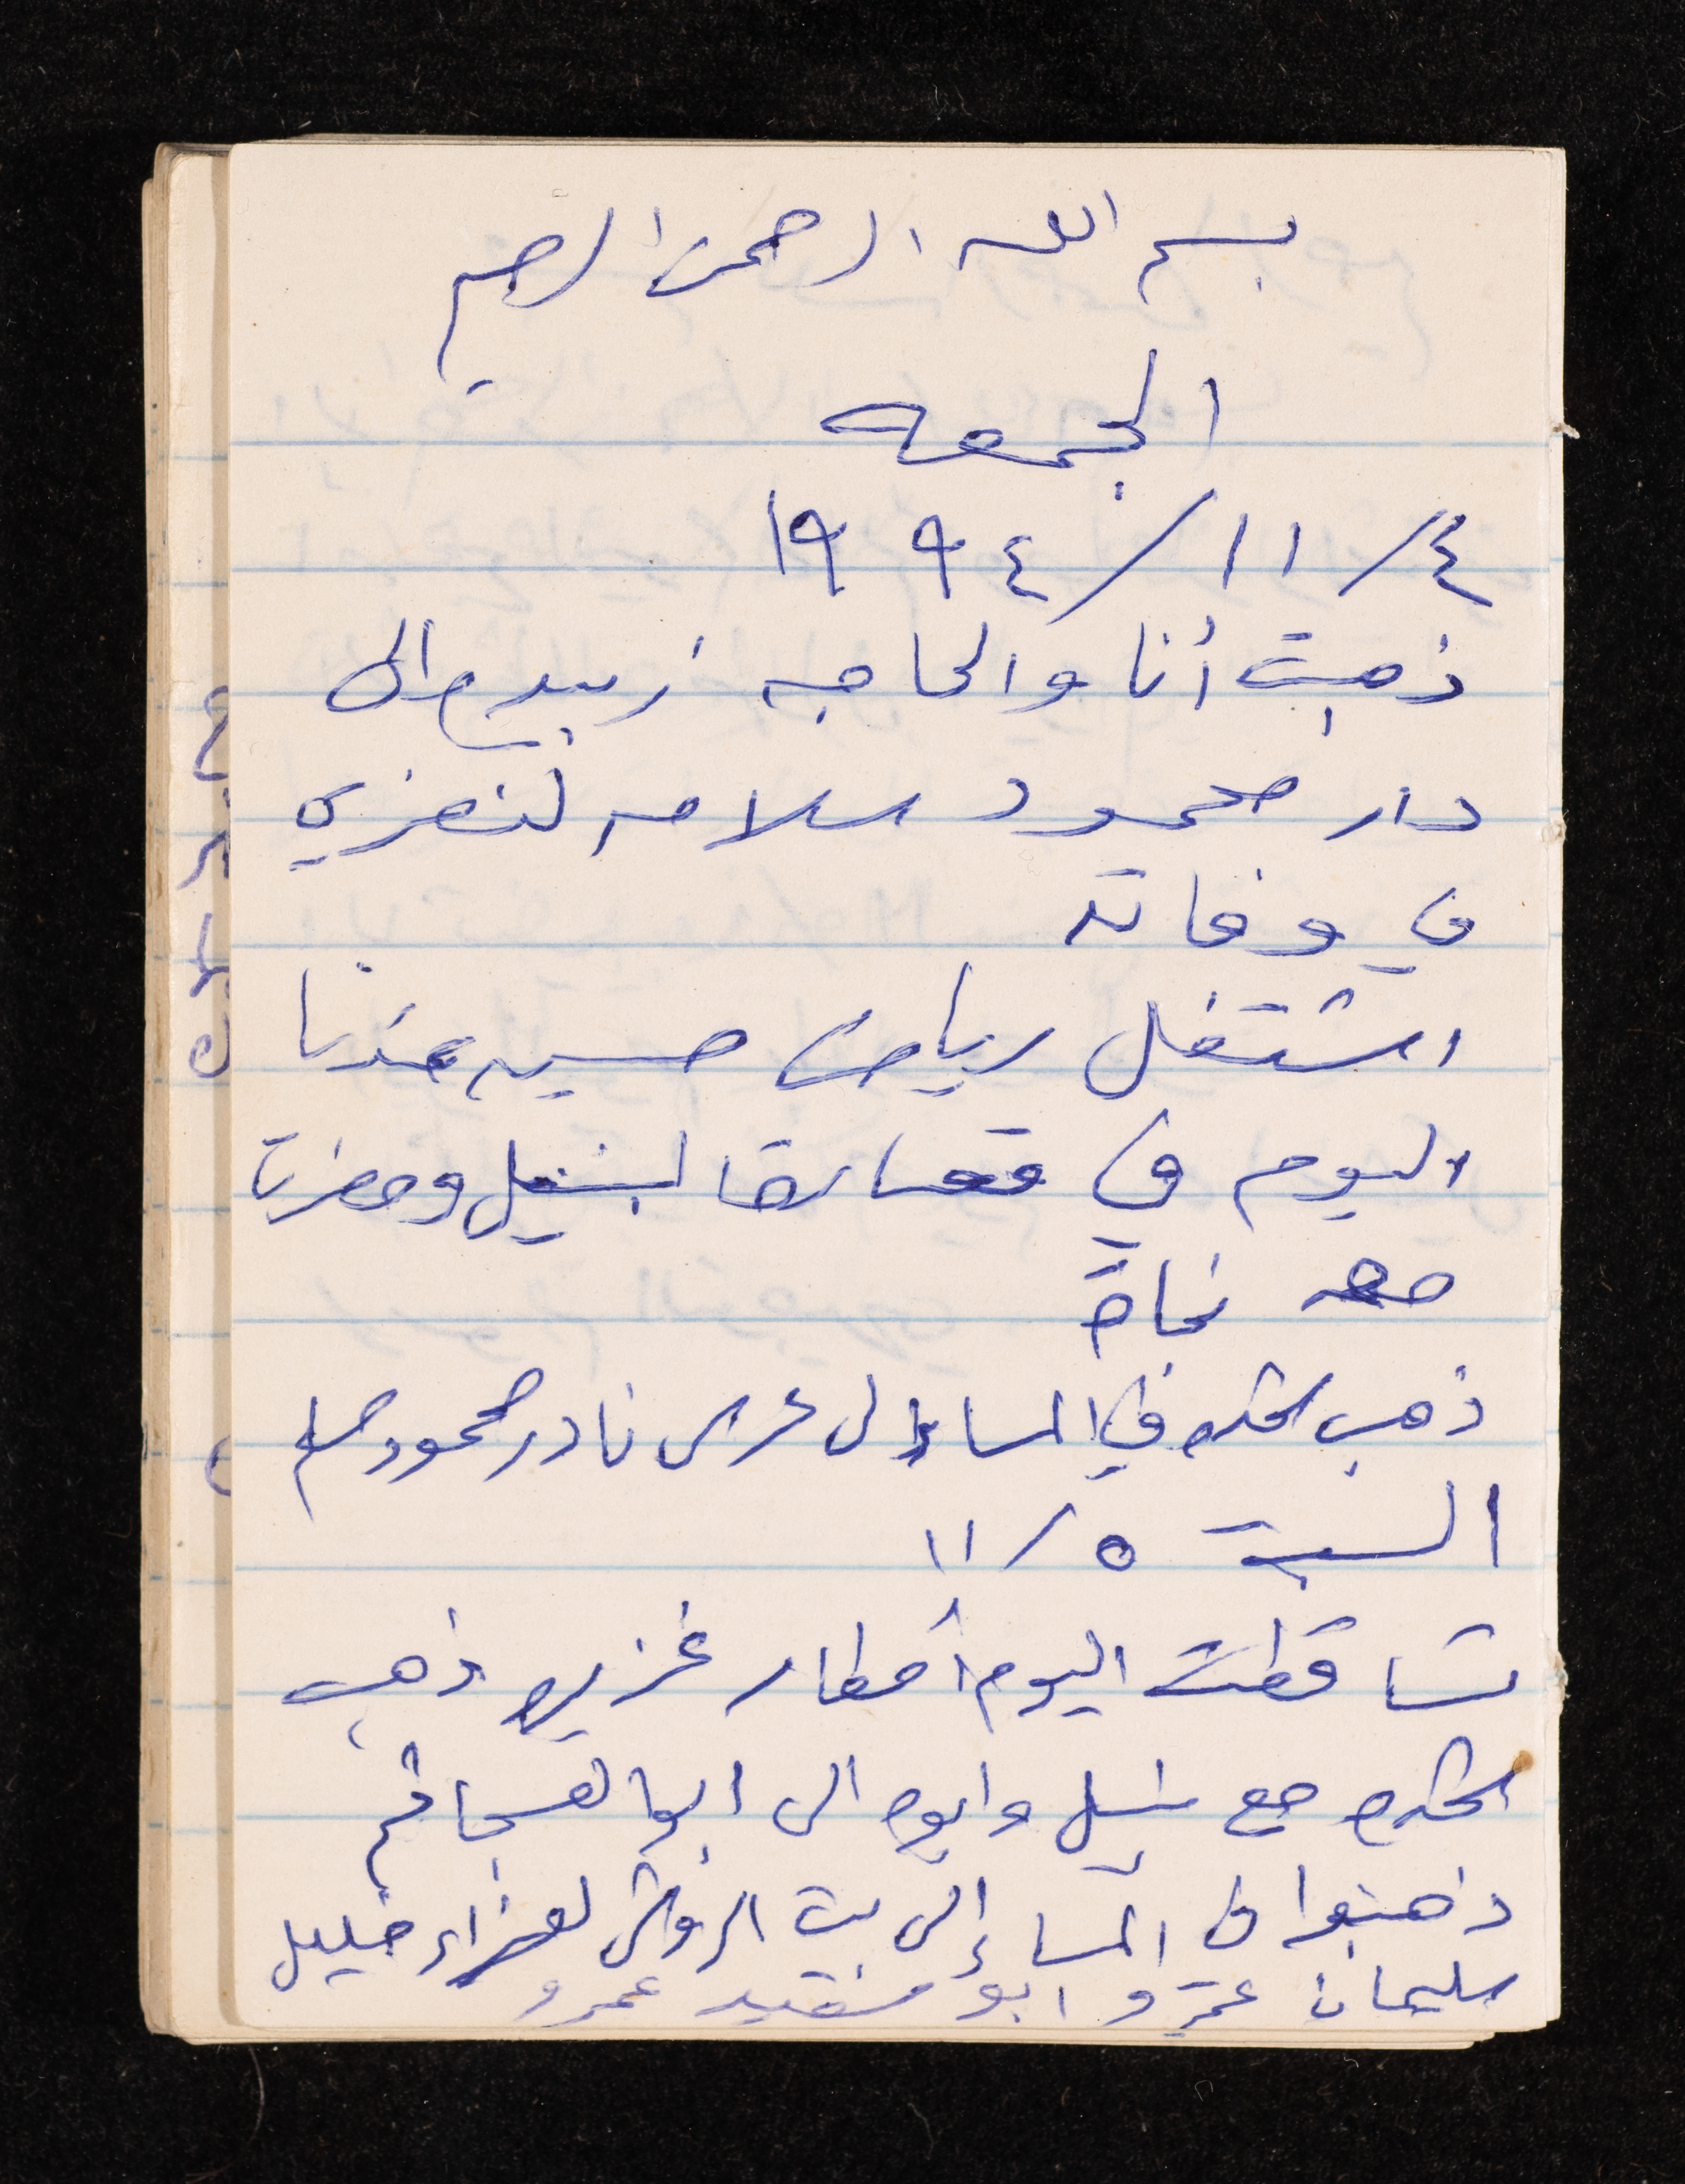 بسم الله الرحمن الرحيم
الجمعه
٤/١١/١٩٩٤
ذهبت أنا والحاجه زبيده الى
دار محمود سلامه لنعزي
في وفاته
اشتغل رياض حسين عندنا
اليوم في قصارة البئيل وحضرت
معه نجاة
ذهب اكثم في المساء إلى عرس نادر محمود
السبت ٥/١١
تساقطت اليوم أمطار غزيره ذهب
اكثم مع نبيل وابوه الى ابو العساكم
ذهبوا في المساء إلى بيت الروش لعزاء خليل
سليمان عمرو ابو سعيد عمرو